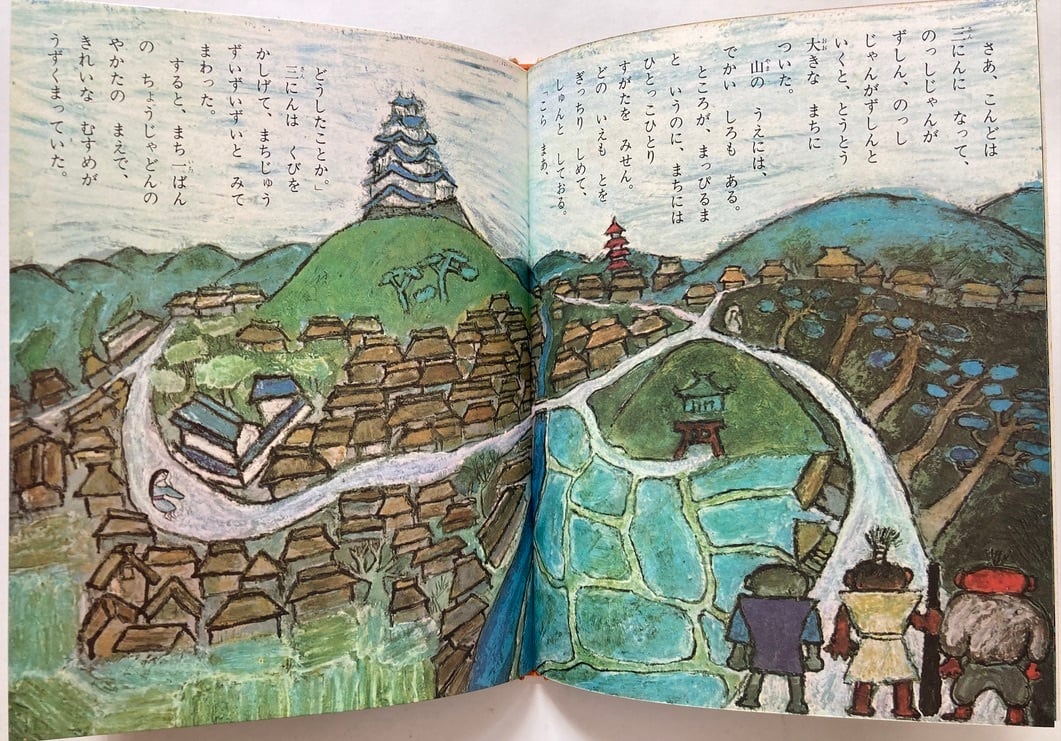 さあ、こんどは
三にんに なって、
のっしじゃんが
ずしん、のっし
じゃんがずしんと
いくと、とうとう
大きな まちに
ついた。
山の うえには、
でかい しろも ある。
ところが、まっぴるま
と いうのに、まちには
ひとっこひとり
すがたを みせん。
どの いえも とを
ぎっちり しめて、
しゅんと しておる。
「こら まあ、
どうしたことか。」
三にんは くびを
かしげて、まちじゅう
ずいずいずいと みて
まわった。
すると、まち一ばん
の ちょうじゃどんの
やかたの まえで、
きれいな むすめが
うずくまっていた。